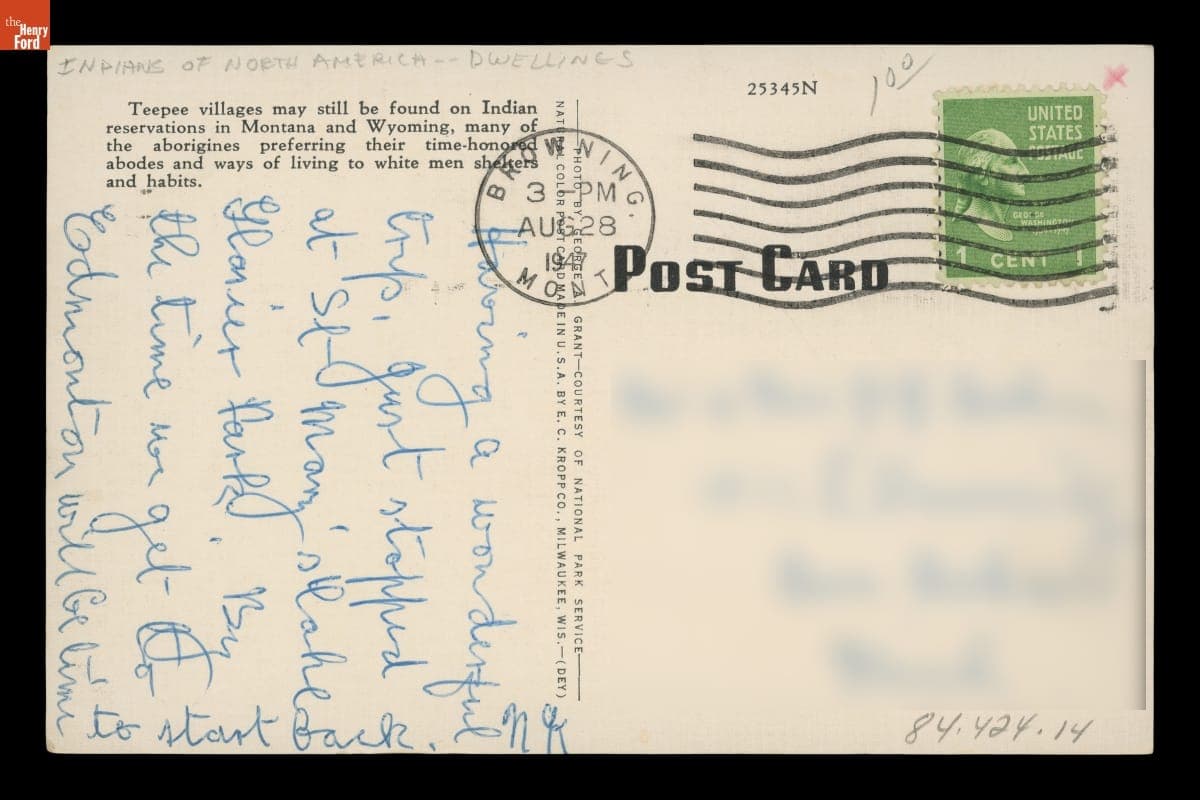 the
Henry
Ford
INDIANS OF NORTH AMERICA -- DWELLINGS
Teepee villages may still be found on Indian
reservations in Montana and Wyoming, many of
the aborigines preferring their time-honored
abodes and ways of living to white men shelters
and habits.
25345N
1.00
x
UNITED
STATES
POSTAGE
GEORGE
WASHINGTON
1 CENT 1
BROWNING.
3 - PM
AUG 28
1947
MONT
POST CARD
PHOTO BY GEORGE A. GRANT—COURTESY OF NATIONAL PARK SERVICE
NATURAL COLOR POST CARD MADE IN U.S.A. BY E. C. KROPP CO., MILWAUKEE, WIS.—(DEY)
Having a wonderful
trip, just stopped
at St Mary's Lake
Glacier Park. By
the time we get to
Edmonton will be time
to start back.
NK
84.424.14